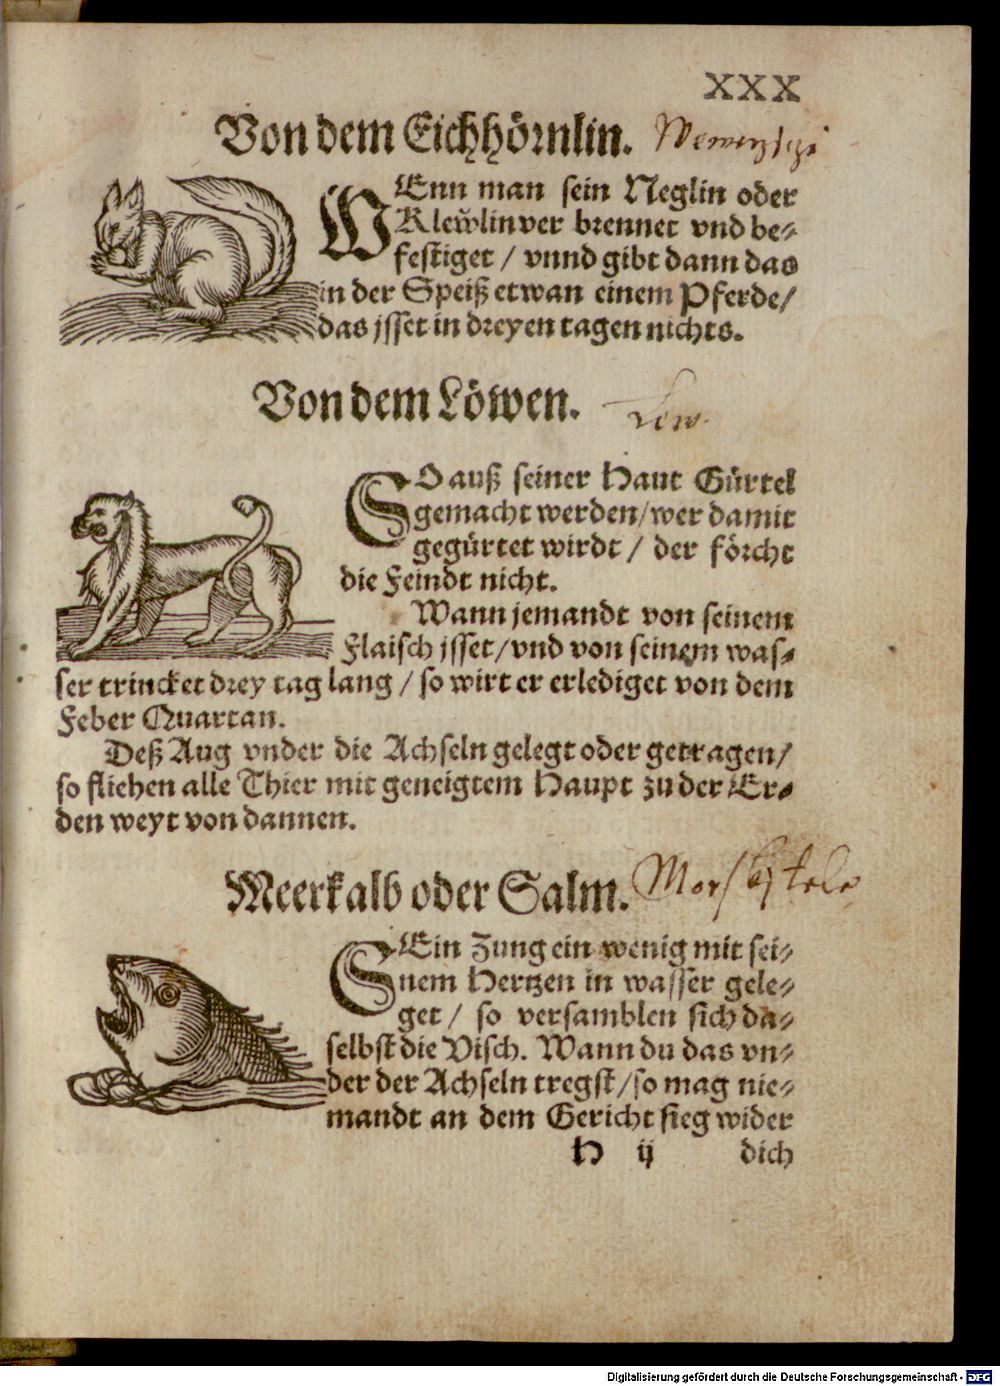 XXX
Von dem Eichhörnlin.
WEnn man sein Neglin oder
Klewlin ver brennet vnd be-
festiget / vnnd gibt dann das
in der Speiß etwan einem Pferde/
das jsset in dreyen tagen nichts.
Von dem Löwen. Lew.
SO auß seiner Haut Gürtel
gemacht werden/wer damit
gegürtet wirdt / der förcht
die Feindt nicht.
Wann jemandt von seinem
Flaisch jsset/vnd von seinem was-
ser trincket drey tag lang / so wirt er erlediget von dem
Feber Quartan.
Deß Aug vnder die Achseln gelegt oder getragen/
so fliehen alle Thier mit geneigtem Haupt zu der Er-
den weyt von dannen.
Meerkalb oder Salm.
SEin Zung ein wenig mit sei-
nem Hertzen in wasser gele-
get / so versamblen sich da-
selbst die Visch. Wann du das vn-
der der Achseln tregst/so mag nie-
mandt an dem Gericht sieg wider
H ij dich
Digitalisierung gefördert durch die Deutsche Forschungsgemeinschaft - DFG